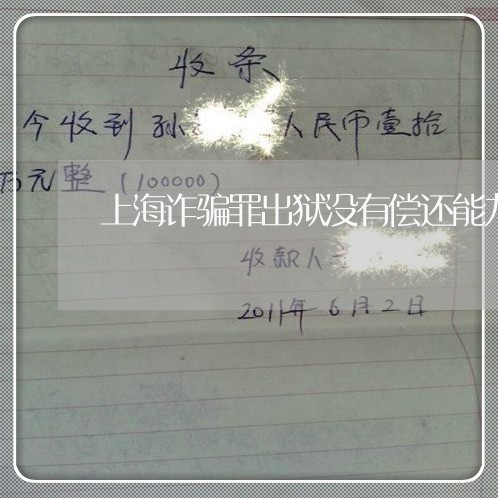 收条
今收到孙 人民币壹拾
万元整（100000）
上海诈骗罪出狱没有偿还能力
收款人
2011年6月2日